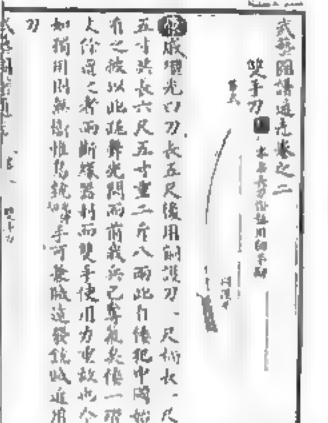 武藝圖譜通志卷之二
雙手刀 本名長刀俗稱用劒平劒
戚繼光曰刀長五尺後用銅護刃一尺柄長一尺
五寸共長六尺五寸重二斤八兩此自倭犯中國始
有之彼以此跳舞光閃而前我兵已奪氣矣倭一躍
丈餘遭之者兩斷緣器利而雙手使用力重故也今
如獨用則無衛惟鳥銃手可兼賊遠發銃賊近用
刀
雙手刀